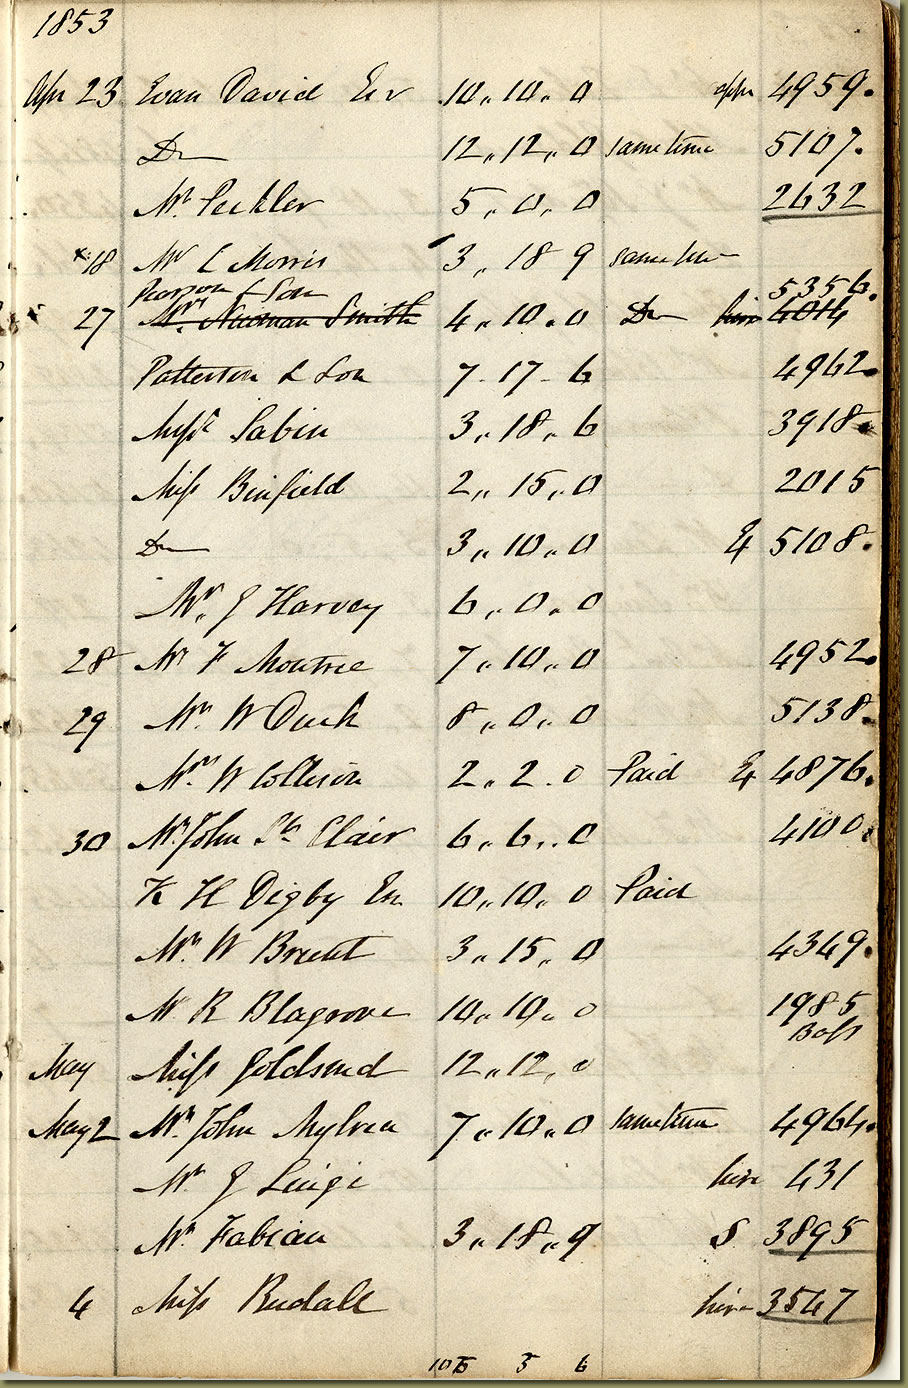 1853
Apr 23 Evan David Esr 10,, 10,, 0 appn 4959.
Do 12,, 12,, 0 sametime 5107.
Mr. Peckler 5,, 0,, 0 2632
18 Mr C Morris 3,, 18 9 sametime
Pearson & Son 5356.
27 Mr. Newman Smith 4,, 10,, 0 Do hire 4014
Patterson & Son 7 - 17 - 6 4962.
Missr Sabin 3,, 18,, 6 3918.
Miss Binfield 2,, 15,, 0 2015
Do 3,, 10,, 0 & 5108.
Mr. J Harvey 6,, 0,, 0
28 Mr F Moutrie 7,, 10,, 0 4952.
29 Mr. W Duck 8,, 0,, 0 5138.
Mr W Collison 2,, 2. 0 Paid & 4876.
30 Mr John St. Clair 6,, 6,, 0 4100.
K H Digby Esr 10,, 10,, 0 Paid
Mr. W Brunt 3,, 15,, 0 4349.
Mr R Blagrove 10,, 10,, 0 1985
Bass
May Miss Goldsmid 12,, 12,, 0
May 2 Mr. John Mylrea 7,, 10,, 0 sametime 4964.
Mr J Luigi hire 431
Mr. Fabian 3,, 18,, 9 S 3895
4 Miss Rudall hire 3547
3 6